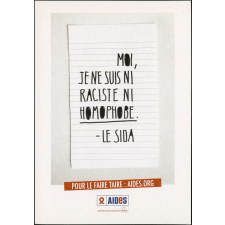 MOI,
JE NE SUIS NI
RACISTE NI
HOMOPHOBE.
- LE SIDA
POUR LE FAIRE TAIRE : AIDES.ORG
AIDES